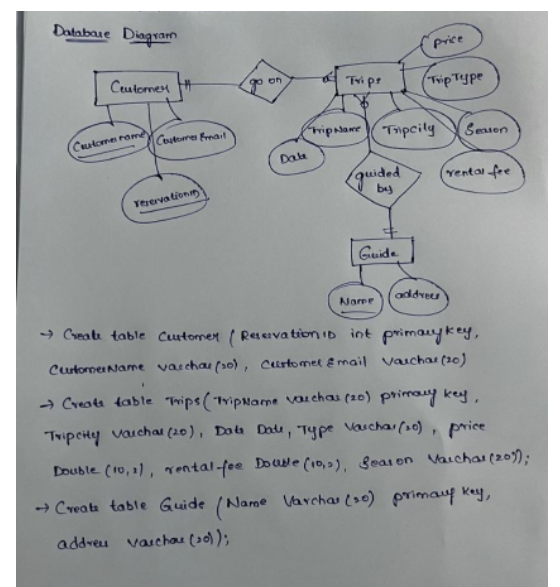 Database Diagram
price
Customer
go on
Trips
TripType
Customername
CustomerEmail
TripName
Tripcity
Season
Date
reservationID
guided
by
rental-fee
Guide
Name
address
→ Create table Customer (ReservationID int primary key,
CustomerName varchar(20), Customer Email varchar(20)
→ Create table Trips(TripName varchar(20) primary key,
Tripcity varchar(20), Date Date, Type varchar(20), price
Double (10,2), rental-fee Double (10,2), Season varchar(20));
→ Create table Guide (Name Varchar(20) primary key,
address varchar(20));